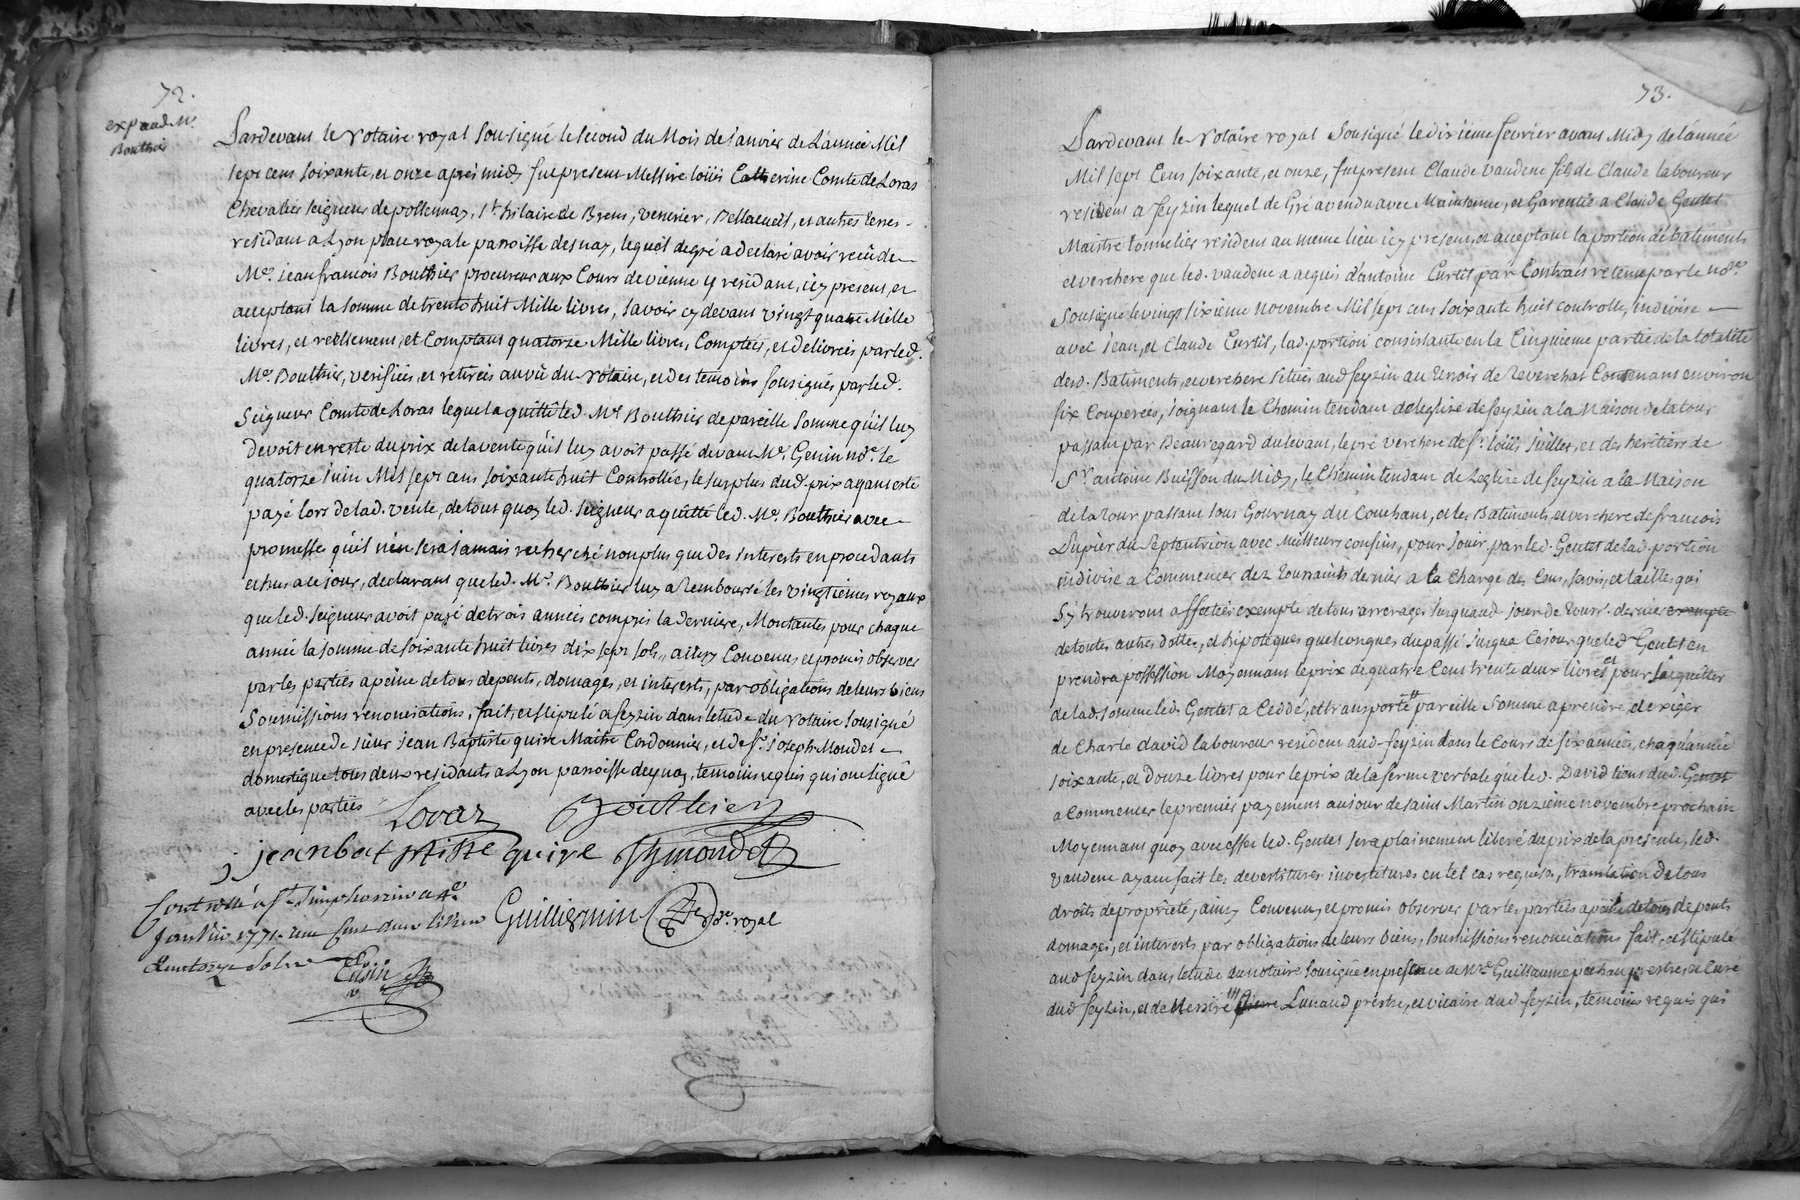 72.
exp aud Mr.
Bouthier
Pardevant le Notaire royal Sousigné le Second du Mois de Janvier de L'année Mil
sept cens soixante, et onze aprés midy fut present Messire loüis Catherine Comte de Loras
Chevalier Seigneur de pollennay, St. hilaire de Brens, et autres Terres
residant a Lyon place royale paroisse desnay, lequel de gré a declaré avoir recû de
Me. jean francois Bouthier procureur aux Cours de vienne y residant, icy present, et
acceptant la somme de trente huit Mille livres, savoir cy devant vingt quatre Mille
livres, et reellement, et Comptant quatorze Mille livres, Comptées, et delivrées par led.
Me. Bouthier, verifiées, et retirées au vû du Notaire, et des temoins sousignés par led.
Seigneur Comte de Loras lequel a quitté led. Me. Bouthier de pareille somme qu'il luy
devoit en reste du prix de la vente qu'il luy avoit passé devant Me. Genin nore. le
quatorze juin Mil sept cens soixante huit Controllée, le surplus dud. prix ayant eté
payé lors de lad. vente, de tout quoy led. Seigneur a quitté led. Me. Bouthier avec
promesse qu'il n'en sera jamais recherché non plus que des interests en procedants
echus a ce jour, declarant que led. Me. Bouthier luy a Remboursé les vingtiemes royaux
que led. Seigneur avoit payé de trois années compris la derniere, Montantes pour chaque
année la somme de soixante huit livres dix sept sols, ainsy Convenu et promis observer
par les parties a peine de tous depents, domages, et interests, par obligations de leurs biens
Soumissions renonciations, fait, et stipulé a feyzin dans letude du Notaire sousigné
en presence de sieur jean Baptiste quire Maitre Cordonnier, et de sr. joseph Mondet
domestique tous deux residants a Lyon paroisse desnay, temoins requis qui ont signé
avec les parties
Loras Bouthier
jean batptiste quire Jh mondet
Controllé a St. Simphorien le 4e
Janvier 1771. Reçu Cent deux livres
quatorze Sols
Guilliermin nore. royal
73.
Pardevant le Notaire royal Sousigné le dixiéme fevrier avant Midy de l'année
Mil sept Cens soixante, et onze, fut present Claude vaudene fils de Claude laboureur
residens a feyzin lequel de Gré a vendu avec Maintenue, et Garentie a Claude Gentet
Maitre tonnelier resident au meme lieu icy present, et acceptant la portion de batiments
et verchere que led. vaudene a aquis d'antoine Curtil par Contrat retenu par le nore.
Sousigné le vingt sixieme novembre Mil sept cens soixante huit controllé, indivise
avec jean, et Claude Curtil, lad. portion consistante en la Cinquieme partie de la totalité
desd. Batiments, et verchere situés aud feyzin au Terroir de Reverchat Contenant environ
six Couperées, joignant le Chemin tendant de leglise de feyzin a la Maison de la tour
passant par Beauregard du levant, le pré verchere de sr. loüis juillet, et des heritiers de
Sr. antoine Buisson du Midy, le Chemin tendant de Leglise de feyzin a la Maison
de la Tour passant sous Gournay du Couchant, et les Batiments, et verchere de francois
Dupier du Septentrion avec Meilleurs confins, pour jouir par led. Gentet de lad. portion
indivise a Commencer dez Toussaints dernier a la Charge des Cens, servis, et tailles qui
S'y trouveront affectés exempte de tous arrerages jusqu'aud jour de Touss. dernier exempte
de toutes autres dettes, et hipoteques quelconques du passé jusqua ce jour que led Gentet en
prendra possession Moyennant le prix de quatre Cent trente deux livres et pour s'aquitter
de lad. somme led. Gentet a Ceddé, et transporté pareille somme a prendre, et exiger
de Charle david laboureur resident aud feyzin dans le Cours de six années, chaque année
soixante, et douze livres pour le prix de la ferme verbale que led. David tient dud. Gentet
a Commencer le premier payement au jour de saint Martin onzieme novembre prochain
Moyennant quoy avec effet led. Gentet sera plainement liberé du prix de la presente, led.
vaudene ayant fait les devestitures investitures en tel cas requises, translation de tous
droits de proprieté, ainsy Convenu, et promis observer par les parties a peine de tous depents
domages, et interests par obligations de leurs biens, soumissions renonciations fait, et stipulé
aud feyzin dans letude du notaire sousigné en presence de Mre. Guillaume pechau prestre, et Curé
dud feyzin, et de Messire Lunaud prestre, et vicaire dud feyzin, temoins requis qui